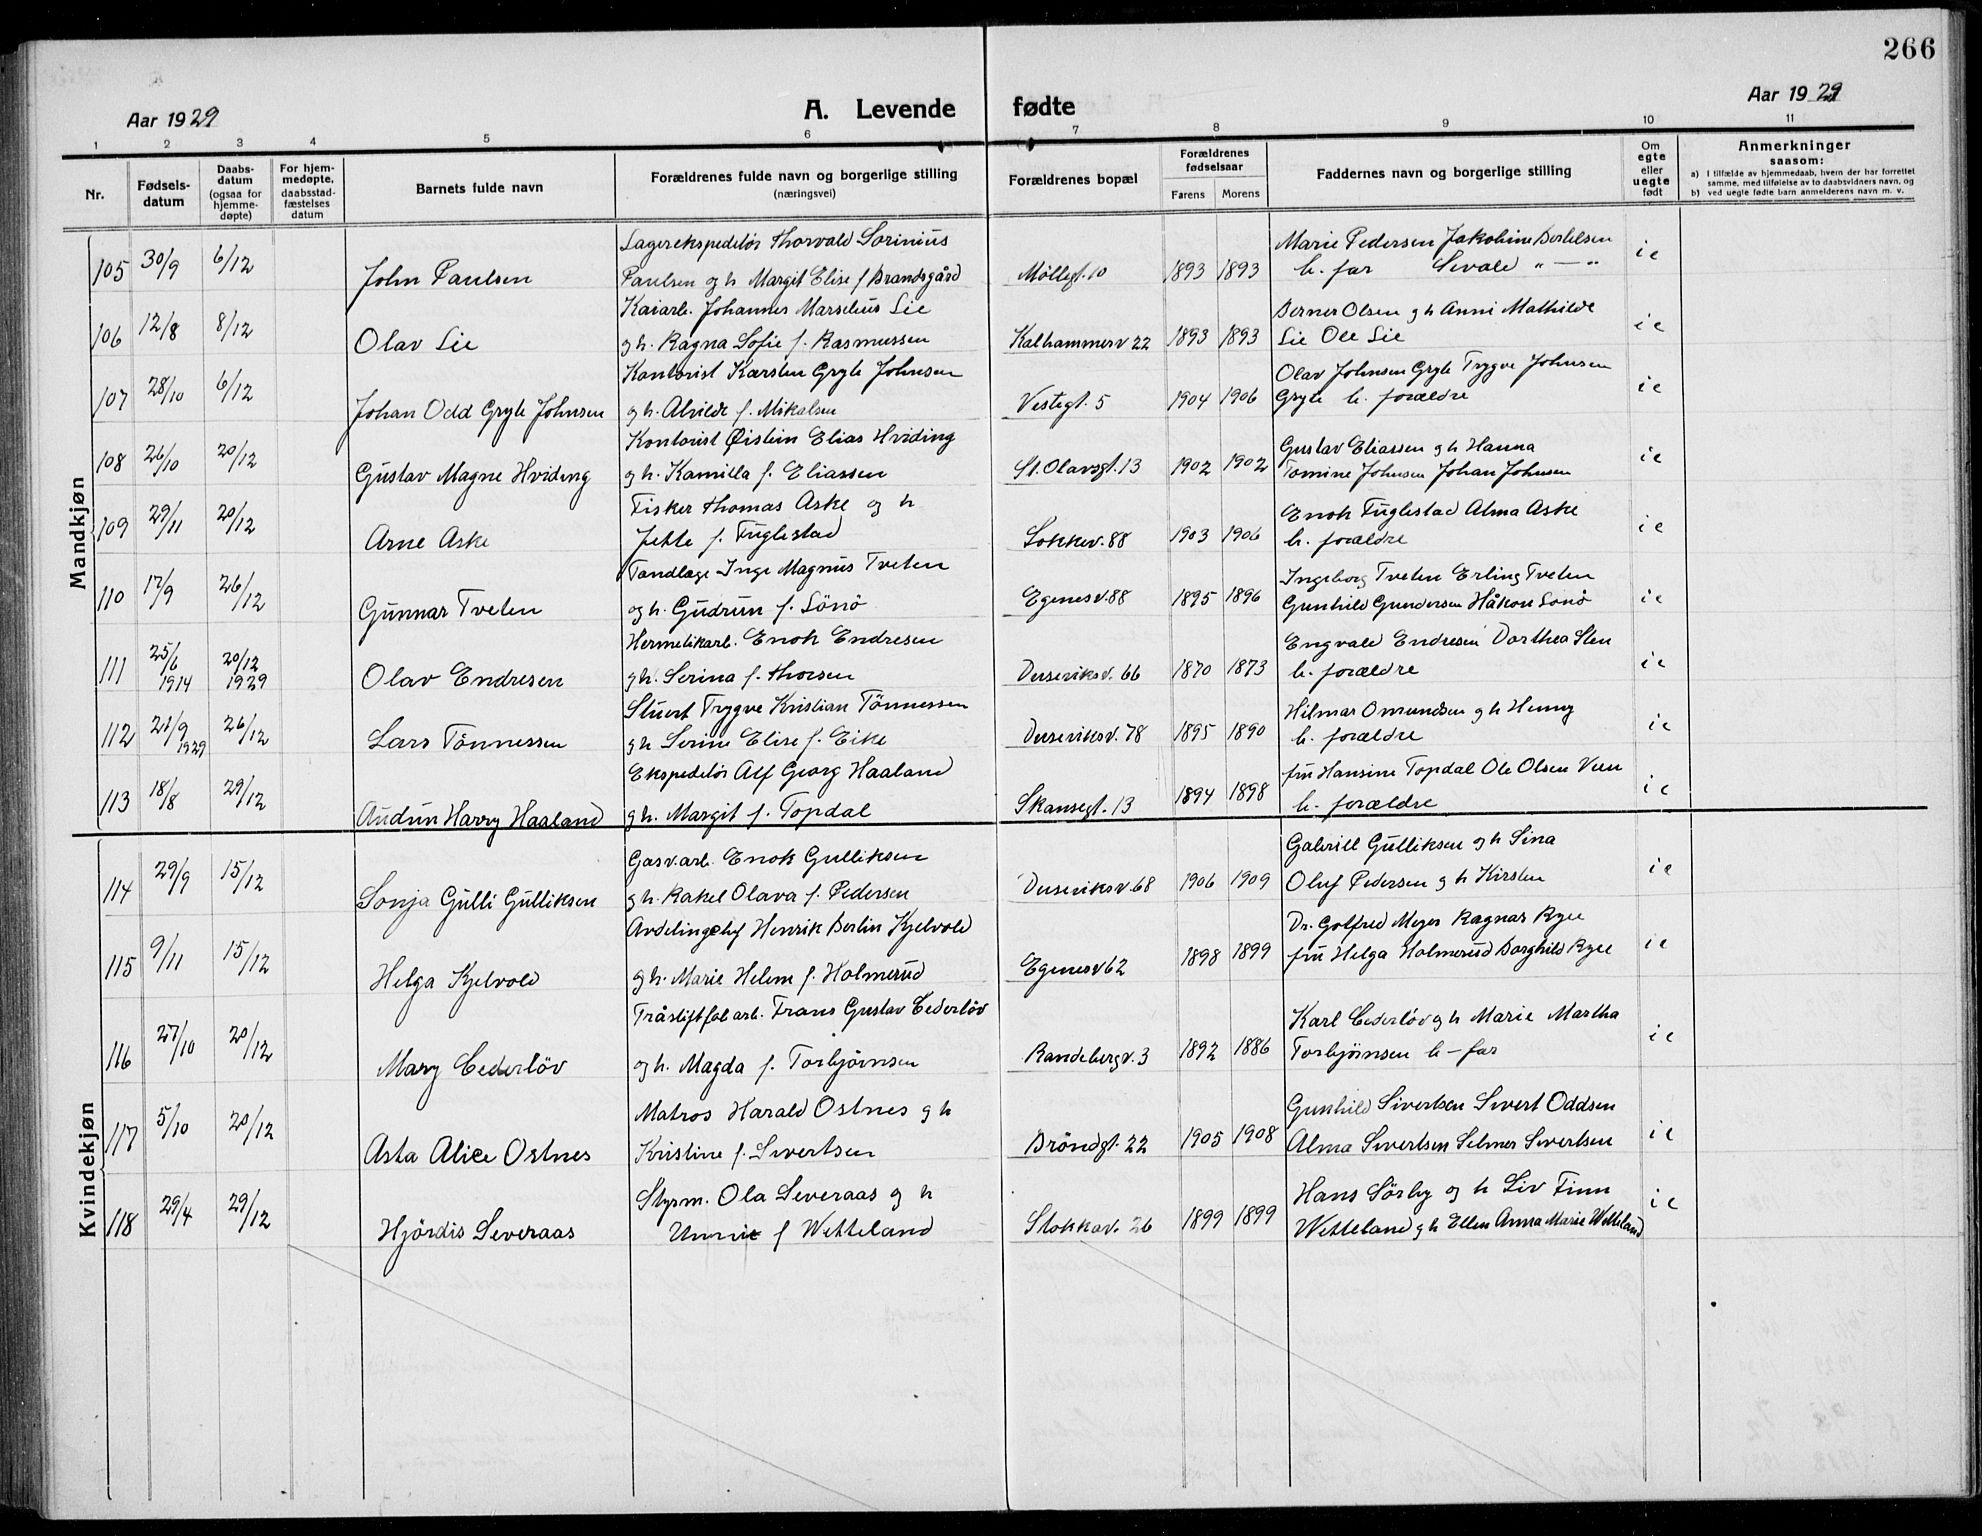 266
Aar 1929
A. Levende fødte
Aar 1929
1 2 3 4 5 6 7 8 9 10 11
Nr.
Fødsels-
datum
Daabs-
datum
(ogsaa for
hjemme-
døpte)
For hjem-
medøpte,
daabsstad-
fæstelses
datum
Barnets fulde navn
Forældrenes fulde navn og borgerlige stilling
(næringsvei)
Forældrenes bopæl
Forældrenes
fødselsaar
Farens Morens
Faddernes navn og borgerlige stilling
Om
egte
eller
uegte
født
Anmerkninger
saasom:
a) I tilfælde av hjemmedaab, hvem der har forrettet
samme, med tilføielse av to daabsvidners navn, og
b) ved uegte fødte barn anmelderens navn m. v.
Mandkjøn
Lagerekspeditör Thorvald Sorinius Marie Pedersen Jakobine Bertelsen
105 30/9 6/12 John Paulsen Paulsen og h Margit Elise f Brandsgård Møllegt. 10 1893 1893 b. far Sevald " — " i e
Kaiarb. Johannes Marselius Lie Berner Olsen g h Anni Mathilde
106 12/8 8/12 Olav Lie og h. Ragna Sofie f. Rasmussen Kalhammerv 22 1893 1893 Lie Ole Lie i e
Kontorist Karsten Gryte Johnsen Olav Johnsen Gryte Trygve Johnsen
107 28/10 6/12 Johan Odd Gryte Johnsen og h. Alvilde f. Mikalsen Vestegt. 5 1904 1906 Gryte b. forældre i e
Kontorist Øistein Elias Hviding Gustav Eliassen g h Hanna
108 26/10 20/12 Gustav Magne Hviding og h. Kamilla f. Eliassen St. Olavsgt. 13 1902 1902 Tomine Johnsen Johan Johnsen i e
Fisker Thomas Aske og h Enok Fuglestad Alma Aske
109 29/11 20/12 Arne Aske Jette f. Fuglestad Stokkev. 88 1903 1906 b. forældre i e
Tandlæge Inge Magnus Tveten Ingeborg Tveten Erling Tveten
110 17/9 26/12 Gunnar Tveten og h. Gudrun f. Sönö Egenesv. 88 1895 1896 Gunhild Gundersen Håkon Sönö i e
Hermetikarb. Enok Endresen Engvald Endresen Dorthea Sten
111 25/6 1914 20/12 1929 Olav Endresen g h. Serina f. Thorsen Duseviksv. 66 1870 1873 b. forældre i e
Stuert Trygve Kristian Tönnessen Hilmar Omundsen g h Henny
112 21/9 1929 26/12 Lars Tönnessen g h Serine Elise f. Eike Duseviksv. 78 1895 1890 b. forældre i e
Ekspeditör Alf Georg Haaland fru Hansine Topdal Ole Olsen Veen
113 18/8 29/12 Audun Harry Haaland g h. Margit f. Topdal Skansegt. 13 1894 1898 b. forældre i e
Kvindekjøn
Gasv.arb. Enok Gulliksen Gabriell Gulliksen og h Sina
114 29/9 15/12 Sonja Gulli Gulliksen g h. Rakel Olava f. Pedersen Duseviksv. 68 1906 1909 Oluf Pedersen g h Kirsten i e
Avdelingschef Henrik Berlin Kjelvold Dr. Gotfred Meyer Ragnar Ryee
115 9/11 15/12 Helga Kjelvold og h. Marie Helem f. Holmerud Egenesv 62 1898 1899 fru Helga Holmerud Borghild Ryee i e
Tråstiftfabarb. Frans Gustav Cederlöv Karl Cederlöv g h Marie Martha
116 27/10 20/12 Mary Cederlöv og h. Magda f. Torbjørnsen Randebergv. 3 1892 1886 Torbjørnsen b - far i e
Matros Harald Ostnes g h Gunhild Sivertsen Sivert Oddsen
117 5/10 20/12 Asta Alice Ostnes Kristine f. Sivertsen Bröndgt. 22 1905 1908 Alma Sivertsen Selmer Sivertsen i e
Styrm. Ola Severaas og h Hans Sörby og h Liv Finn
118 29/4 29/12 Hjördis Severaas Unni f Wetteland Stokkav. 26 1899 1899 Wetteland g h Ellen Anna Marie Wetteland i e